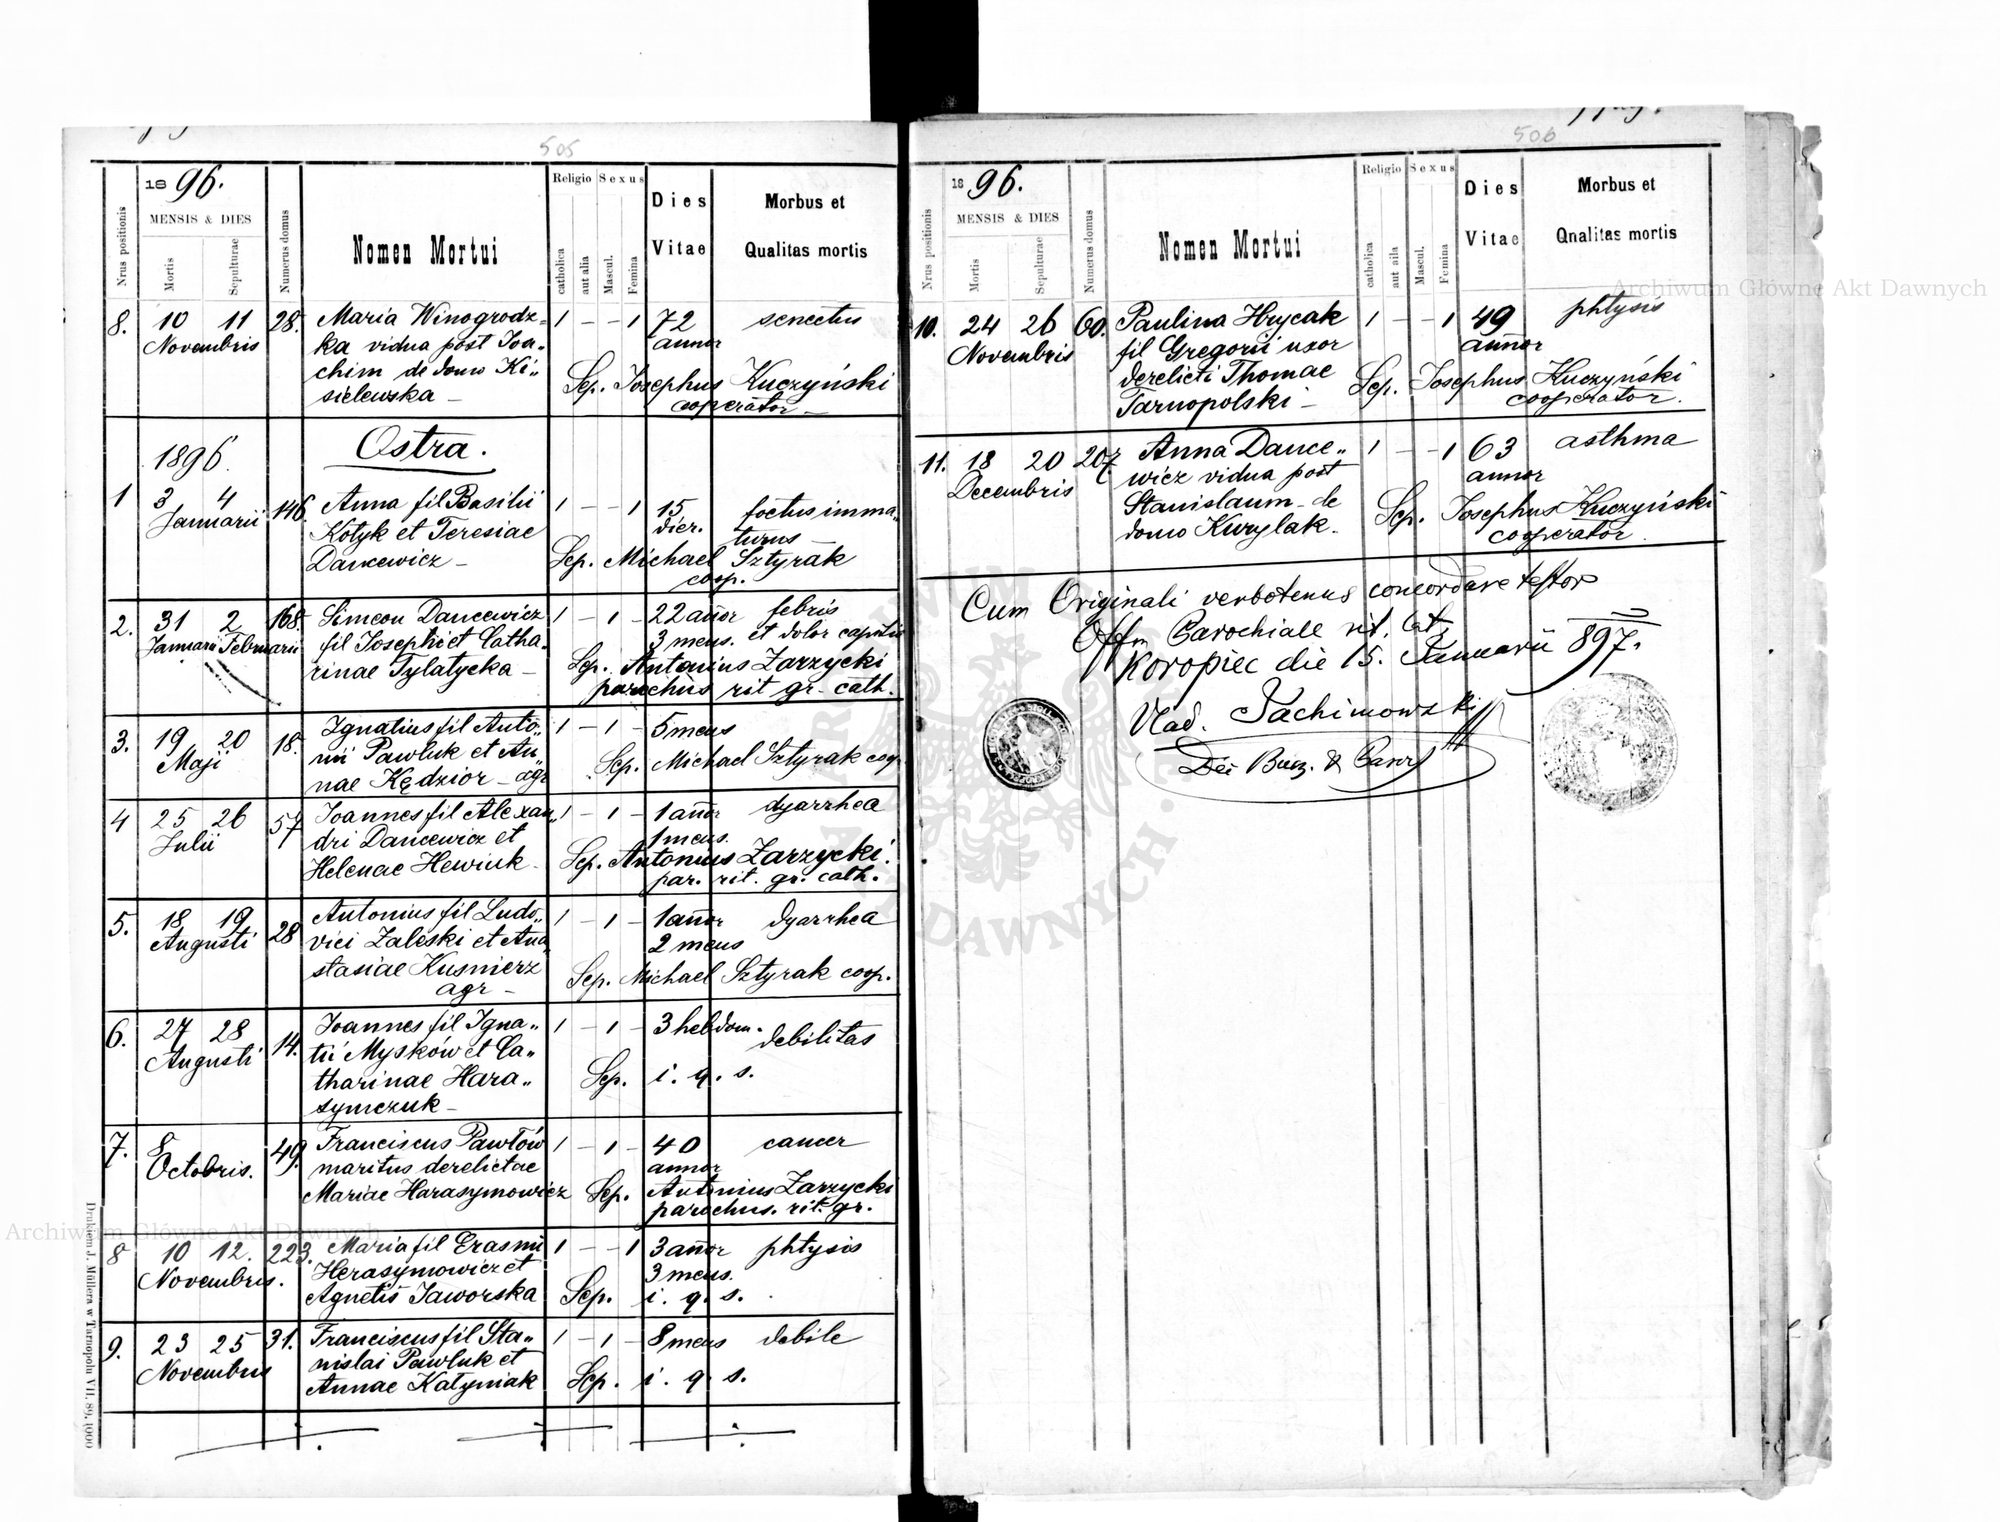 505
18 96.
Nrus positionis
MENSIS & DIES
Mortis
Sepulturae
Numerus domus
Nomen Mortui
Religio
Sexus
catholica
aut alia
Mascul.
Femina
Dies
Vitae
Morbus et
Qualitas mortis
8. 10 11 28. Maria Winogrodz= 1 – – 1 72 senectus
Novembris ka vidua post Joa„ annor
chim de domo Ki„ Sep. Josephus Kuczyński
sielewska – cooperator –
1896. Ostra.
1 3 4 146. Anna fil Basilii 1 – – 1 15 foetus imma„
Januarii Kotyk et Teresiae dier. turus –
Dancewicz – Sep. Michael Sztyrak
coop.
2. 31 2 168. Simeon Dancewicz 1 – 1 – 22 añor febris
Januarii Februarii fil Josephi et Catha„ 3 mens. et dolor capitis
rinae Sylatycka – Sep. Antonius Zarzycki
parochus rit gr. cath.
3. 19 20 18. Ignatius fil Anto„ 1 – 1 – 5 mens
Maji nii Pawluk et An„ Sep. Michael Sztyrak coop.
nae Kędzior – agr
4 25 26 57 Joannes fil Alexan„ 1 – 1 – 1 añor dyarrhea
Julii dri Dancewicz et 1 mens.
Helenae Hewiuk – Sep. Antonius Zarzycki.
par. rit. gr. cath.
5. 18 19 28 Antonius fil Ludo„ 1 – 1 – 1 añor dyarrhea
Augusti vici Zaleski et Ana 2 mens
stasiae Kusnierz Sep. Michael Sztyrak coop.
agr –
6. 27 28 14. Joannes fil Igna„ 1 – 1 – 3 hebdom. debilitas
Augusti tii Mysków et Ca„
tharinae Hara„ Sep. i. q. s.
symczuk –
7. 8 49. Franciscus Pawłów 1 – 1 – 40 cancer
Octobris. maritus derelictae annor
Mariae Harasymowicz Sep. Antonius Zarzycki
parochus. rit. gr.
8 10 12. 223. Maria fil Erasmi 1 – – 1 3 añor phtysis
Novembris. Herasymowicz et 3 mens.
Agnetis Jaworska Sep. i. q. s.
9. 23 25 31. Franciscus fil Sta„ 1 – 1 – 8 mens debile
Novembris nislai Pawluk et
Annae Katyniak Sep. i. q. s.
Drukiem J. Müllera w Tarnopolu VII. 89. 1000
506
18 96.
Nrus positionis
MENSIS & DIES
Mortis
Sepulturae
Numerus domus
Nomen Mortui
Religio
Sexus
catholica
aut aila
Mascul.
Femina
Dies
Vitae
Morbus et
Qnalitas mortis
10. 24 26 60. Paulina Hrycak 1 – – 1 49 phtysis
Novembris fil Gregorii uxor annor
derelicti Thomae Sep. Josephus Kuczyński
Tarnopolski – cooperator.
11. 18 20 207 Anna Dance„ 1 – – 1 63 asthma
Decembris wicz vidua post annor
Stanislaum de Sep. Josephus Kuczyński
domo Kurylak. cooperator.
Cum Originali verbotenus concordare testor
Offm Parochiale rit. lat.
Koropiec die 15. Januarii 897.
Vlad. Jachimowski
Archiwum Główne Akt Dawnych
Archiwum Główne Akt Dawnych